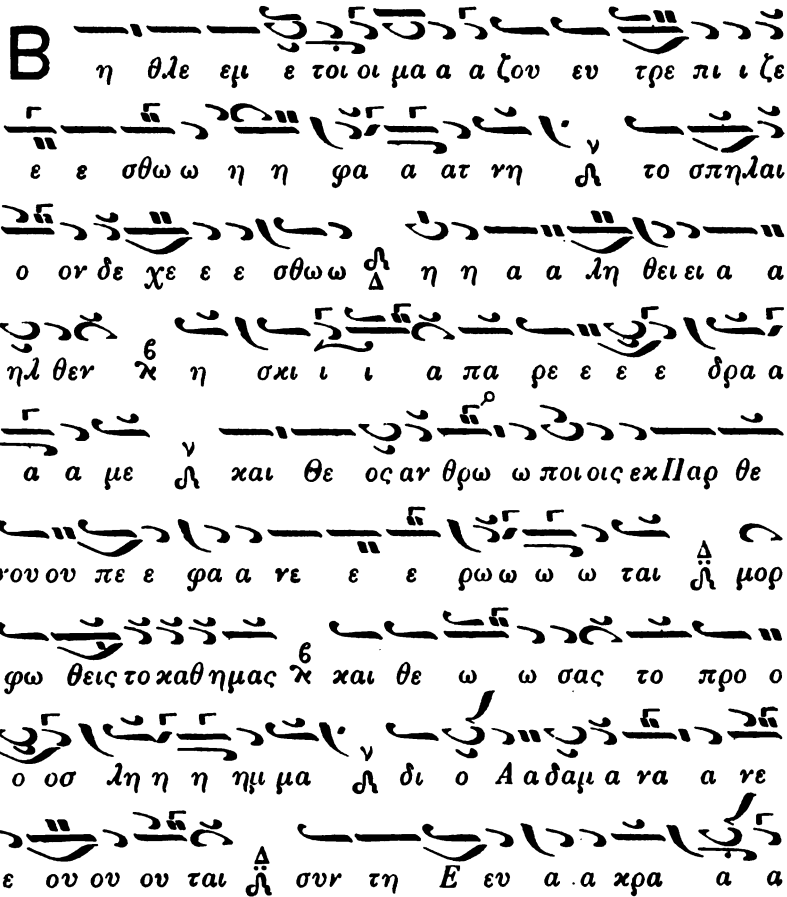 Β η θλε εμ ε τοι οι μα α α ζου ευ τρε πι ι ζε
ε ε σθω ω η η φα α ατ νη ν το σπηλαι
ο ον δε χε ε ε σθω ω Δ η η α α λη θει ει α α
ηλ θεν β η σκι ι ι α πα ρε ε ε ε δρα α
α α με ν και Θε ος αν θρω ω ποι οις εκ Παρ θε
νου ου πε ε φα α νε ε ε ρω ω ω ω ται Δ μορ
φω θεις το καθ ημας β και θε ω ω σας το προ ο
ο οσ λη η η ημ μα ν δι ο Α α δαμ α να α νε
ε ου ου ου ται Δ συν τη Ε ευ α α κρα α α